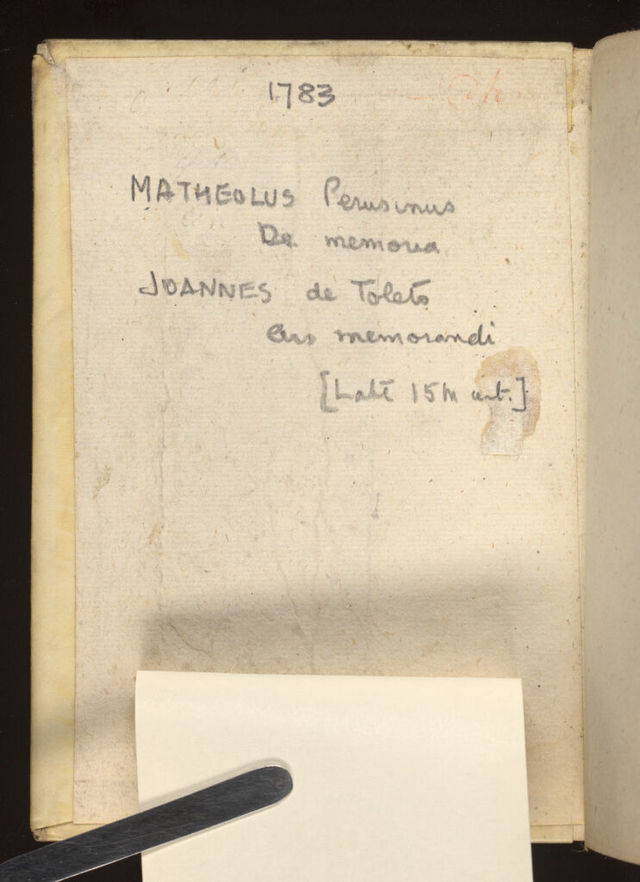 1783
MATHEOLUS Perusinus
De memoria
JOANNES de Toleto
Ars memorandi
[Late 15th cent.]